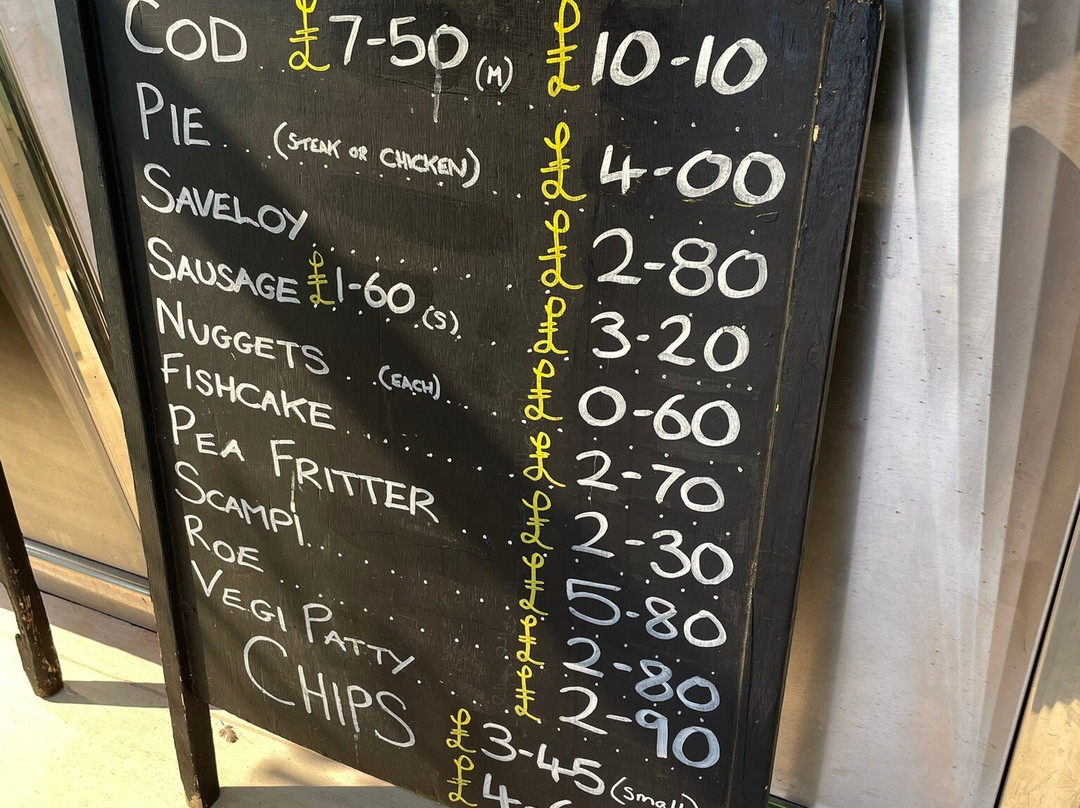 COD £7-50 (M) £10-10
PIE (STEAK OR CHICKEN) £4-00
SAVELOY £2-80
SAUSAGE £1-60 (S) £3-20
NUGGETS (EACH) £0-60
FISHCAKE £2-70
PEA FRITTER £2-30
SCAMPI £5-80
ROE £2-80
VEGI PATTY £2-90
CHIPS £3-45 (small)
£4-